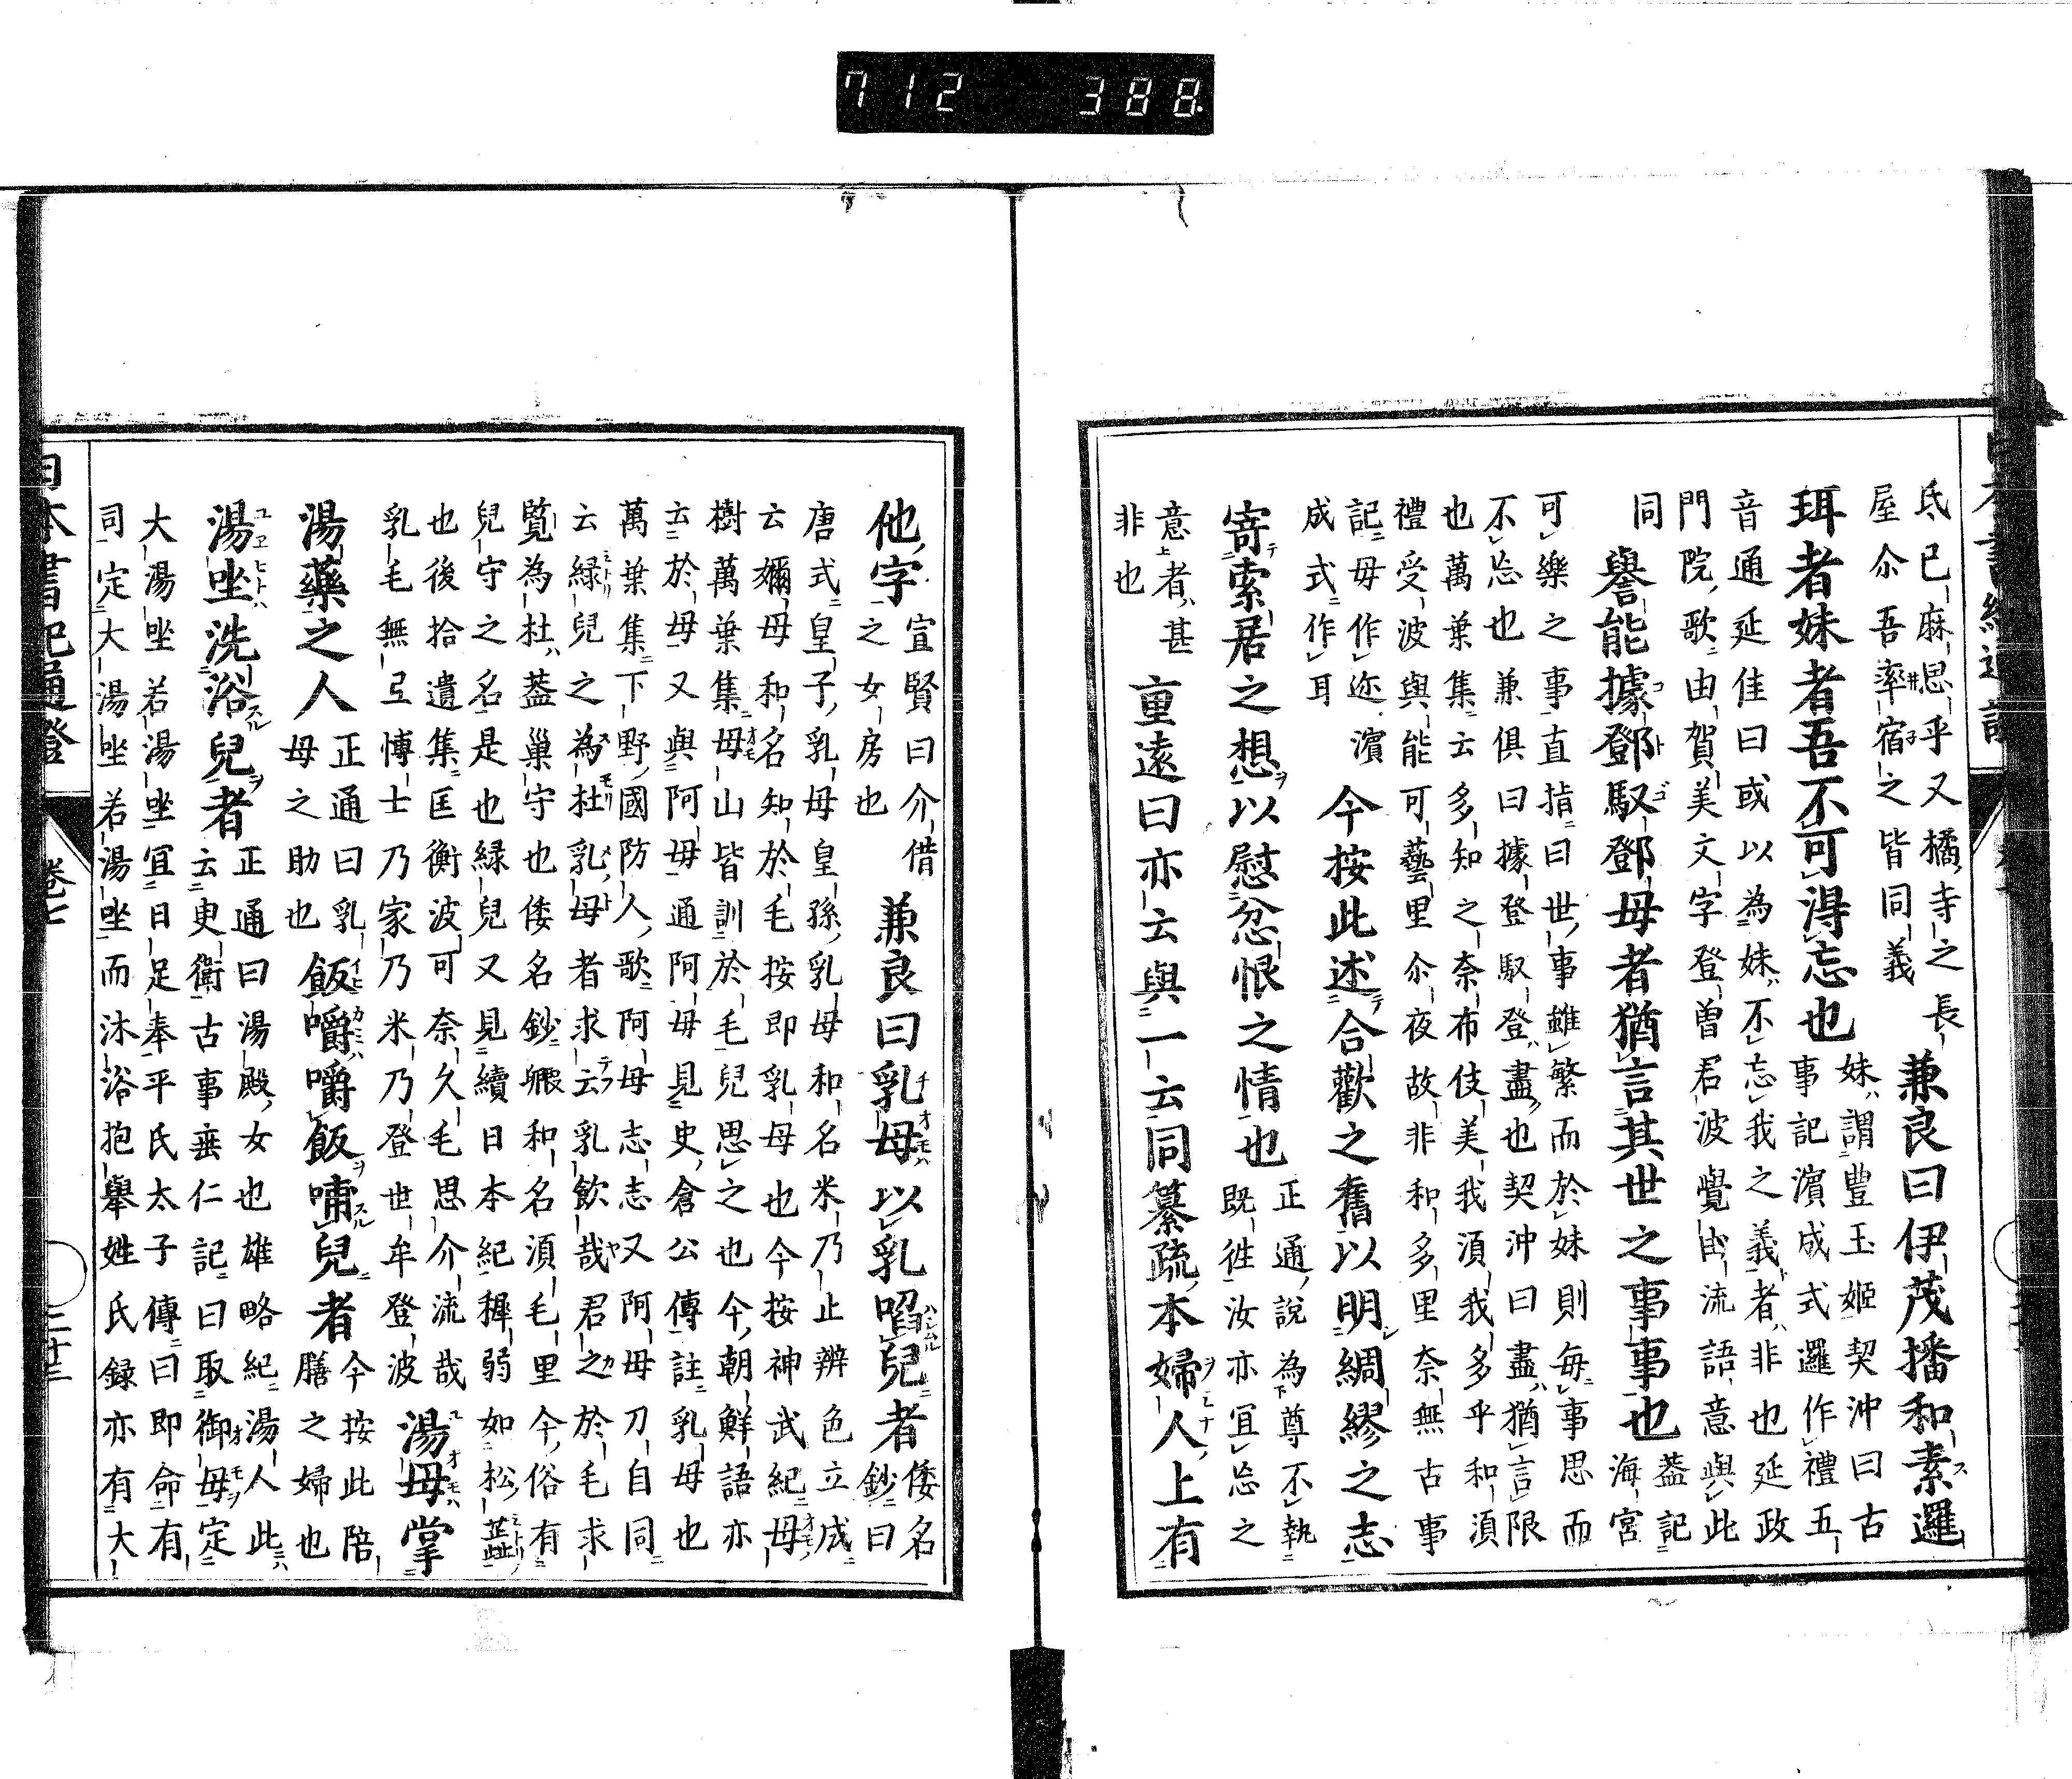 712 388
氐已麻思乎又橘寺之長
屋尒吾率宿之皆同義
兼良曰伊茂播和素邏
珥者妹者吾不可得忘也
妹謂豊玉姬契沖曰古
事記濵成式邏作禮五
音通延佳曰或以為妹不忘我之義者非也延政
門院歌由賀美文字登曽君波覺由流語意與此
同
譽能據鄧馭鄧母者猶言其世之事事也
葢記
海宮
可樂之事直指曰世事雖繁而於妹則每事思而
不忘也兼俱曰據登馭登盡也契沖曰盡猶言限
也萬葉集云多知之奈布伎美我湏我多乎和湏
禮受波與能可藝里尒夜故非和多里奈無古事
記毋作迩濵
成式作耳
今按此述合歡之舊以明綢繆之志
寄索君之想以慰忿恨之情也
正通說為尊不執
既徃汝亦宜忘之
意者甚
非也
重遠曰亦云與一云同纂疏本婦人上有
他字
宜賢曰介借
之女房也
兼良曰乳母以乳啗兒者
倭名
鈔曰
唐式皇子乳母皇孫乳母和名米乃止辨色立成
云嬭母和名知於毛按即乳母也今按神武紀母
樹萬葉集母山皆訓於毛兒思之也今朝鮮語亦
云於母又與阿母通阿母見史倉公傳註乳母也
萬葉集下野國防人歌阿母志志又阿母刀自同
云緑兒之為杜乳母者求云乳飲哉君之於毛求
覧為杜葢巢守也倭名鈔和名湏毛里今俗有
兒守之名是也緑兒又見續日本紀稺弱如松
也後拾遺集匡衡波可奈久毛思介流哉
乳毛無弖慱士乃家乃米乃登世牟登波
湯母掌
湯藥之人
正通曰乳
母之助也
飯嚼嚼飯哺兒者
今按此陪
膳之婦也
湯坐洗浴兒者
正通曰湯殿女也雄略紀湯人此
云臾衞古事垂仁記曰取御母定
大湯坐若湯坐宜日足奉平氏太子傳曰即命有
司定大湯坐若湯坐而沐浴抱舉姓氏録亦有大
日本書紀通證
卷七
二十三